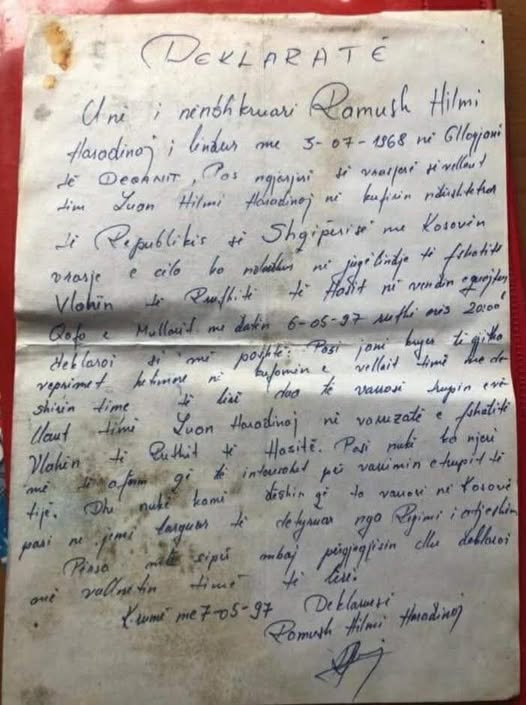 DEKLARATË
Unë i nënshkruari Ramush Hilmi
Haradinaj i lindur me 3-07-1968 në Gllogjani
të DEÇANIT, Pas ngjarjes së vrasjes së vellaut
tim Luan Hilmi Haradinaj në kufirin ndërshtetror
të Republikës së Shqipërisë me Kosovën
vrasje e cila ka ndodhur në juglindje të fshatit
Vlahën të Rrethit të Hasit në vendin e quajtur
Qafa e Mullarit me datën 6-05-97 rreth orës 20:00
deklaroj si më poshtë: Pasi jani kryer të gjitha
veprimet hetimore në kufomën e vellait timë me de-
shirën time të lirë dua të varrosi trupin e vë-
llaut timë Luan Haradinaj në varrezat e fshatitë
Vlahën të Rrethit të Hasitë. Pasi nukë ka njeri
më të afërm që të interesohet për varrimin e trupit të
tije. Dhe nukë kami dëshirë që ta varrosi në Kosovë
pasi ne jemi larguar të detyruar nga Regjimi
Përsa më sipër mbaj përgjegjësin dhe deklaroj
me vullnetin timë të lirë.
Krumë me 7-05-97 Deklaruesi
Ramush Hilmi Haradinaj